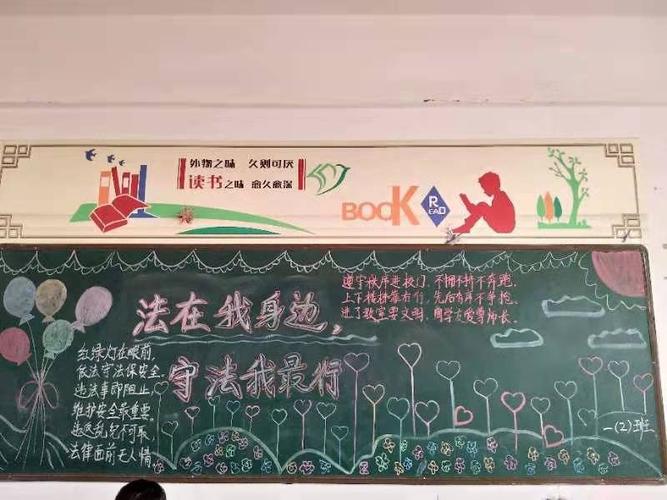 外物之味 久则可厌
读书之味 愈久愈深
BOOK
R
EAD
法在我身边,
守法我最行
遵守秩序进校门,不拥不挤不奔跑,
上下楼梯靠右行,先后有序不争抢,
进了教室要文明,同学友爱尊师长。
红绿灯在眼前,
依法守法保安全.
违法事即阻止,
维护安全最重要
违反乱纪不可取
法律面前无人情
一(2)班